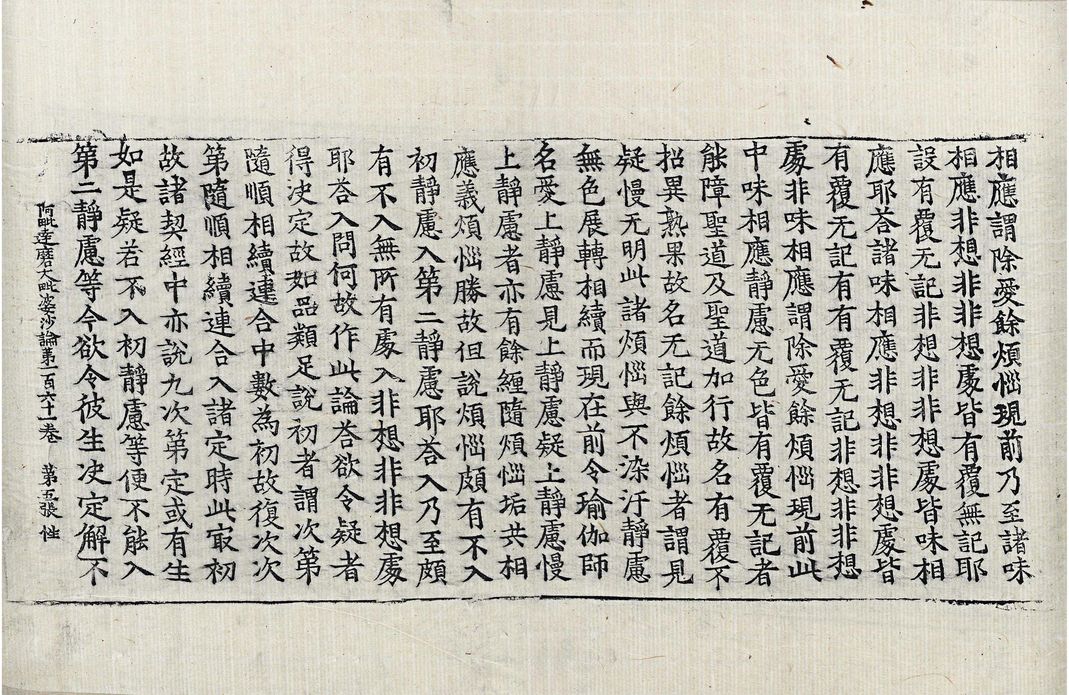 相應謂除愛餘煩惱現前乃至諸味
相應非想非非想處皆有覆無記耶
設有覆无記非想非非想處皆味相
應耶荅諸味相應非想非非想處皆
有覆无記有有覆无記非想非非想
處非味相應謂除愛餘煩惱現前此
中味相應靜慮无色皆有覆无記者
能障聖道及聖道加行故名有覆不
招異熟果故名无記餘煩惱者謂見
疑慢无明此諸煩惱與不染汙靜慮
無色展轉相續而現在前令瑜伽師
名愛上靜慮見上靜慮疑上靜慮慢
上靜慮者亦有餘纏隨煩惱垢共相
應義煩惱勝故但說煩惱頗有不入
初靜慮入第二靜慮耶荅入乃至頗
有不入無所有處入非想非非想處
耶荅入問何故作此論荅欲令疑者
得决定故如品類足說初者謂次第
隨順相續連合中數為初故復次次
第隨順相續連合入諸定時此㝡初
故諸契經中亦說九次第定或有生
如是疑若不入初靜慮等便不能入
第二靜慮等今欲令彼生决定解不
阿毗達磨大毗婆沙論第一百六十一卷 第五張 性